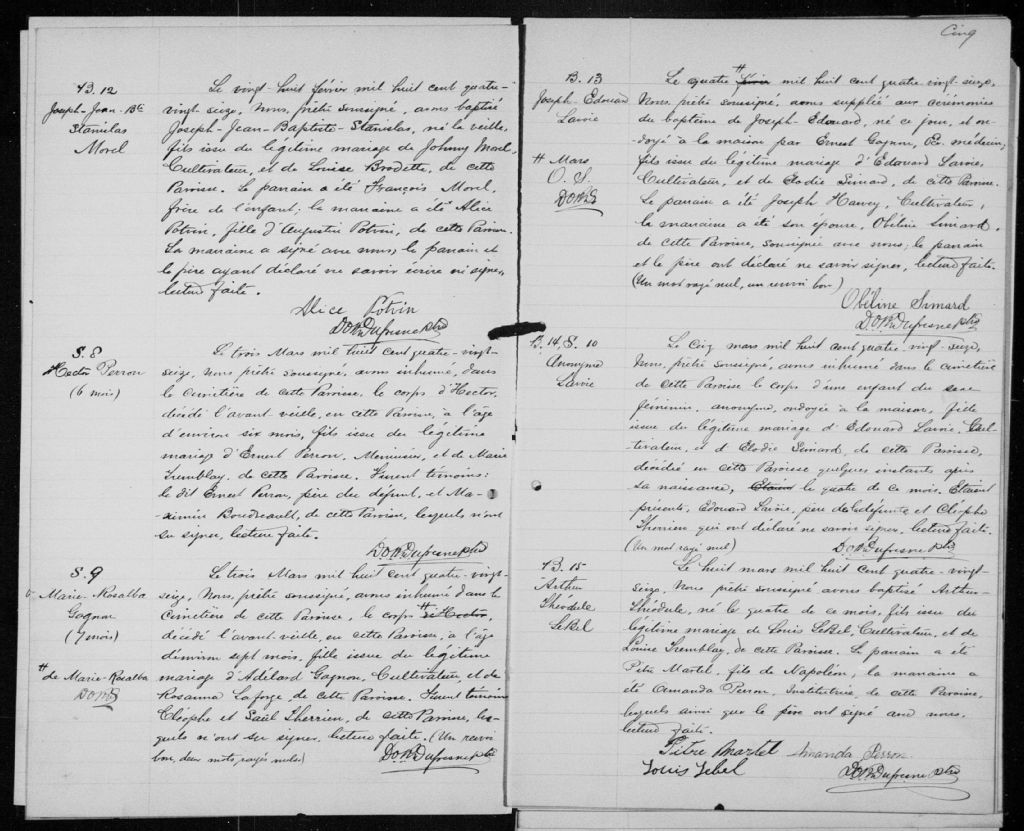 B. 12
Joseph-Jean-Bte
Stanislas
Morel
Le vingt-huit février mil huit cent quatre-
vingt-seize, Nous, prêtre soussigné, avons baptisé
Joseph-Jean-Baptiste-Stanislas, né la veille,
fils issu du légitime mariage de Johnny Morel,
Cultivateur, et de Louise Brodette, de cette
Paroisse. Le parrain a été François Morel,
frère de l'enfant; la marraine a été Alice
Potvin, fille d'Augustin Potvin, de cette Paroisse.
La marraine a signé avec nous; le parrain et
le père ayant déclaré ne savoir écrire ni signer,
lecture faite.
Alice Potvin
D.O.R. Dufresne Ptre
S. 8
Hector Perron
(6 mois)
Le trois Mars mil huit cent quatre-vingt-
seize, Nous prêtre soussigné, avons inhumé, dans
le Cimetière de cette Paroisse, le corps d'Hector,
décédé l'avant-veille, en cette Paroisse, à l'âge
d'environ six mois, fils issu du légitime
mariage d'Ernest Perron, Menuisier, et de Marie
Tremblay, de cette Paroisse. Furent témoins:
le dit Ernest Perron, père du défunt, et Ma-
ximin Boudreault, de cette Paroisse, lesquels n'ont
su signer, lecture faite.
D.O.R. Dufresne Ptre
S. 9
Marie-Rosalba
Gagnon
(7 mois)
# de Marie-Rosalba
D.O.R.D.
Le trois Mars mil huit cent quatre-vingt-
seize, Nous, prêtre soussigné, avons inhumé dans le
Cimetière de cette Paroisse, le corps # d'Hector,
décédé l'avant-veille, en cette Paroisse, à l'âge
d'environ sept mois, fille issue du légitime
mariage d'Adélard Gagnon, Cultivateur et de
Rosanna Laforge, de cette Paroisse. Furent témoins
Cléophe et Saül Therrien, de cette Paroisse, les-
quels n'ont su signer, lecture faite. (Un renvoi
bon, deux mots rayés nuls.)
D.O.R. Dufresne Ptre
Cinq
B. 13
Joseph-Edouard
Lavoie
# Mars
O. S.
D.O.R.D.
Le quatre # février mil huit cent quatre vingt-seize,
Nous, prêtre soussigné, avons suppléé aux cérémonies
du baptême de Joseph-Edouard, né ce jour, et on-
doyé à la maison par Ernest Gagnon, Ec. médecin,
fils issu du légitime mariage d'Edouard Lavoie,
Cultivateur, et de Elodie Simard, de cette Paroisse.
Le parrain a été Joseph Harvey, Cultivateur,
la marraine a été son épouse, Obéline Simard,
de cette Paroisse, soussignée avec nous; le parrain
et le père ont déclaré ne savoir signer, lecture faite.
(Un mot rayé nul, un renvoi bon)
Obéline Simard
D.O.R. Dufresne Ptre
B. 14. S. 10
Anonyme
Lavoie
Le Cinq mars mil huit cent quatre-vingt-seize,
Nous, prêtre soussigné, avons inhumé dans le cimetière
de cette Paroisse le corps d'une enfant du sexe
féminin, anonyme, ondoyée à la maison, fille
issue du légitime mariage d'Edouard Lavoie, Cul-
tivateur, et d'Elodie Simard, de cette Paroisse,
décédée en cette Paroisse quelques instants après
sa naissance, Etaient le quatre de ce mois. Etaient
présents, Edouard Lavoie, père de la défunte et Cléophe
Therrien qui ont déclaré ne savoir signer, lecture faite.
(Un mot rayé nul)
D.O.R. Dufresne Ptre
B. 15
Arthur
Théodule
LeBel
Le huit mars mil huit cent quatre-vingt-
seize, Nous prêtre soussigné avons baptisé Arthur-
Théodule, né le quatre de ce mois, fils issu du
légitime mariage de Louis LeBel, Cultivateur, et de
Louise Tremblay, de cette Paroisse. Le parrain a été
Pitre Martel, fils de Napoléon, la marraine a
été Amanda Perron, Institutrice, de cette Paroisse,
lesquels ainsi que le père ont signé avec nous,
lecture faite.
Pitre Martel Amanda Perron
Louis Lebel
D.O.R. Dufresne Ptre